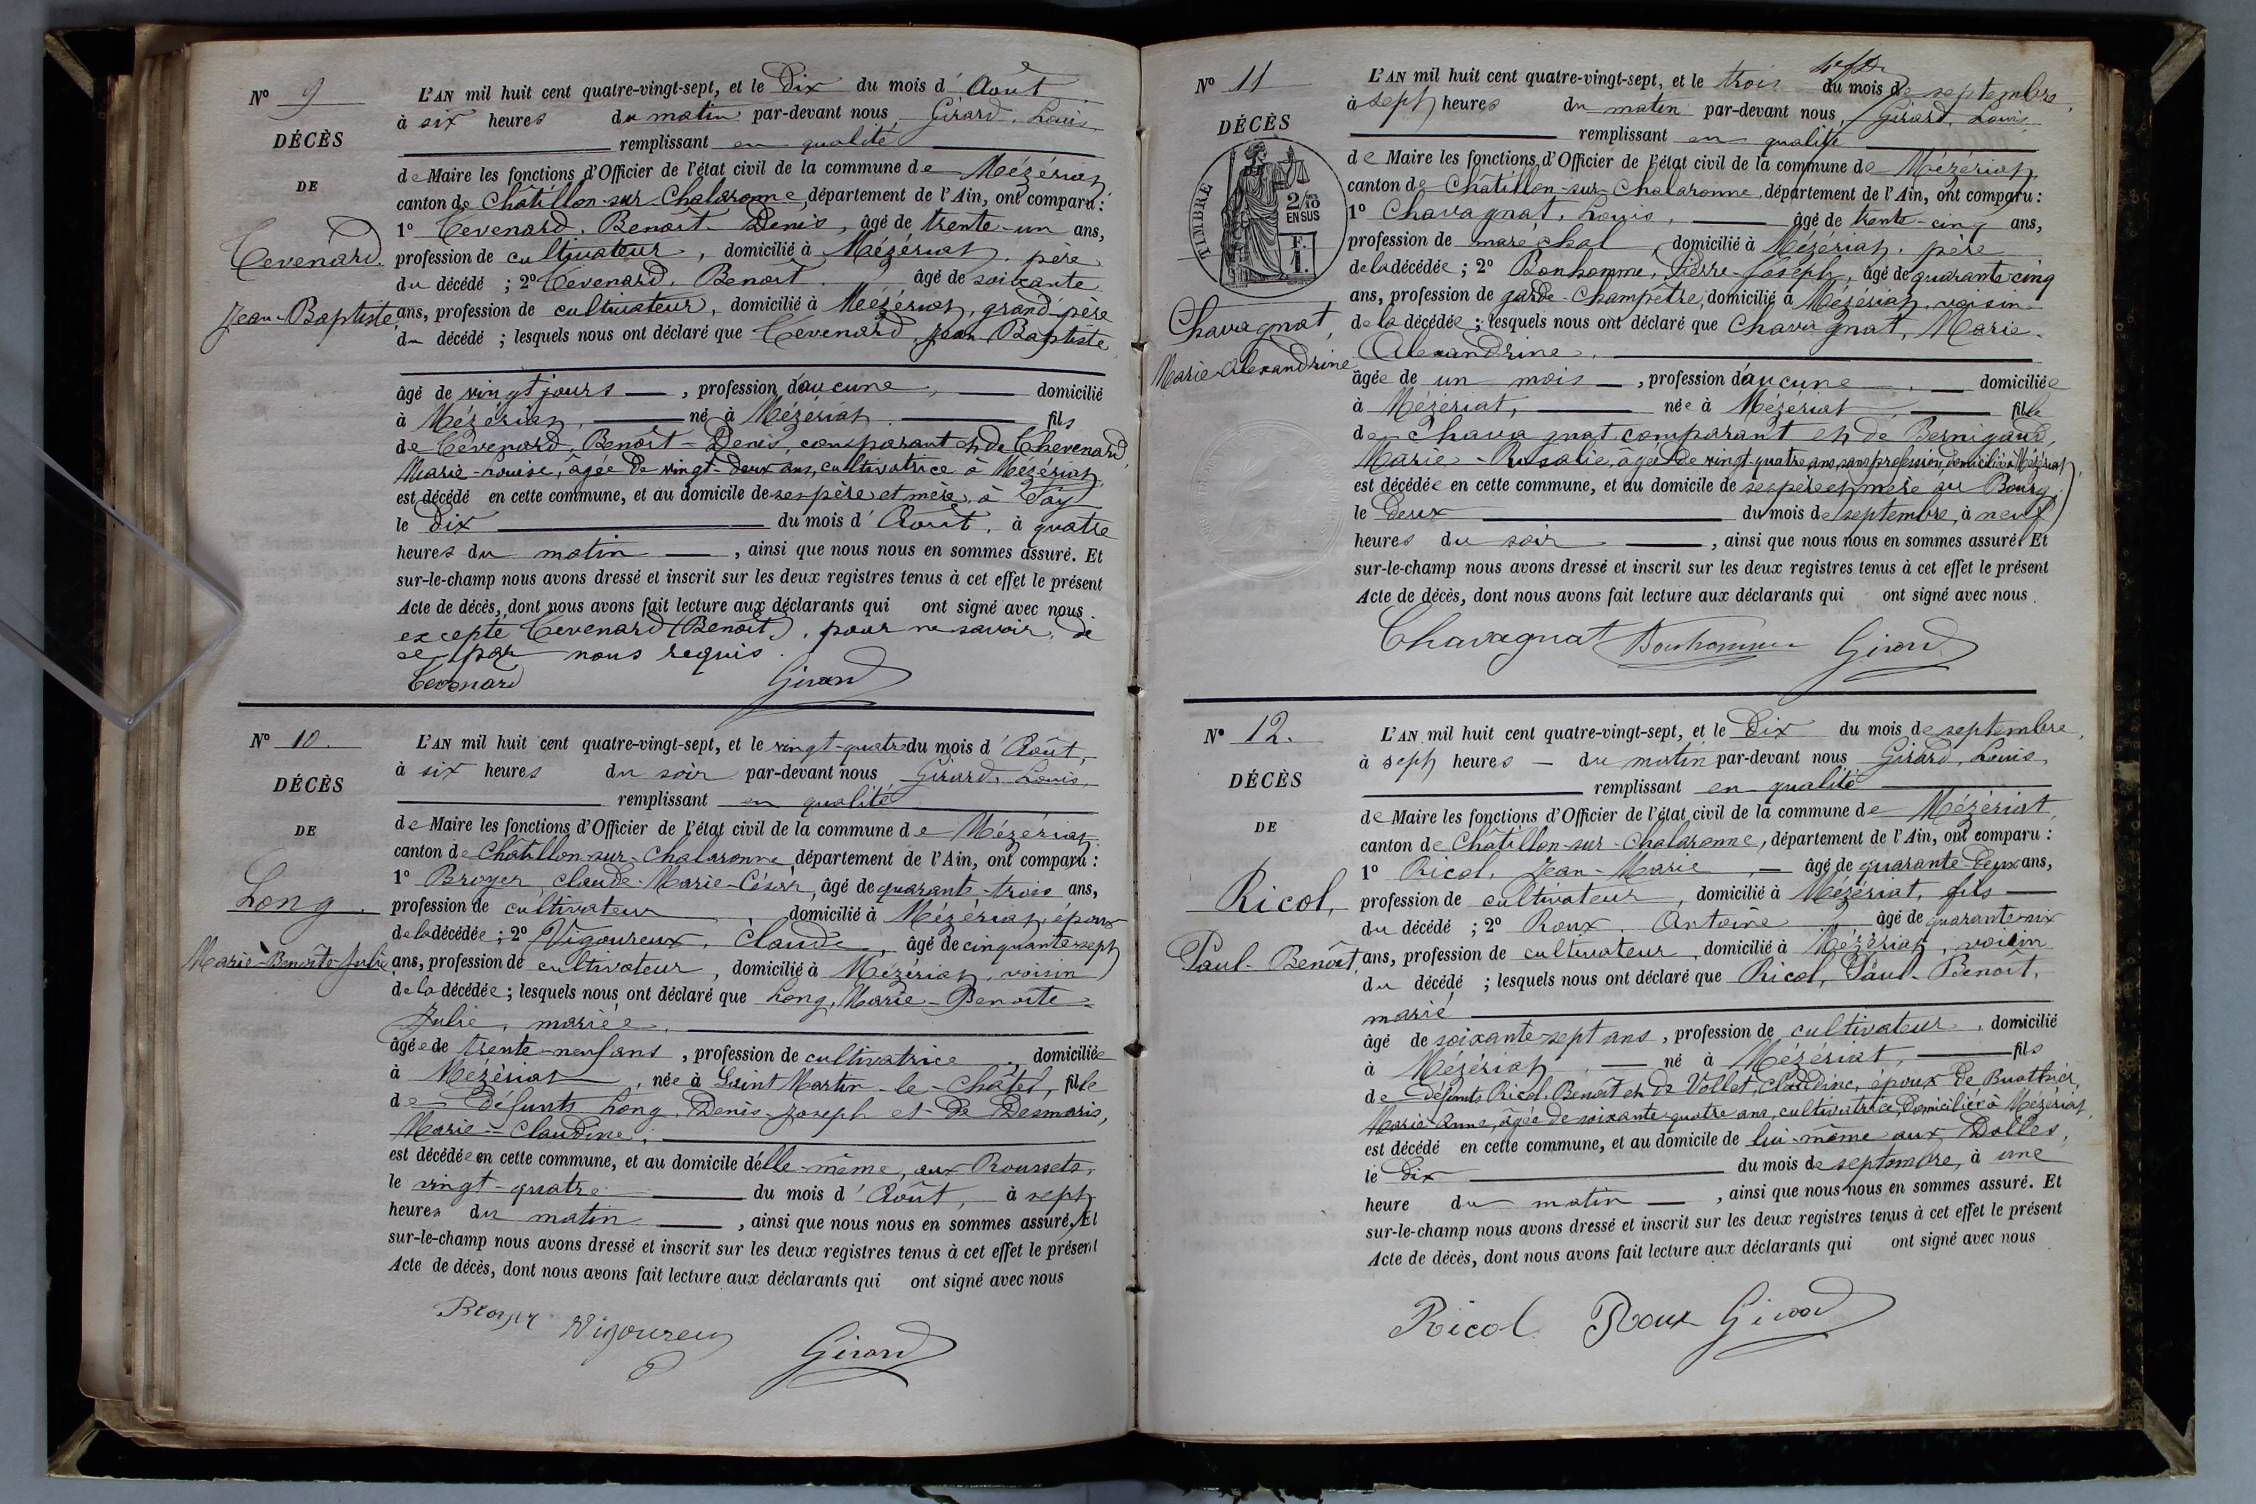 N° 9
DÉCÈS
DE
Cevenard
Jean-Baptiste
L'AN mil huit cent quatre-vingt-sept, et le Dix du mois d'Août
à six heures du matin par-devant nous Girard, Louis,
remplissant en qualité
de Maire les fonctions d'Officier de l'état civil de la commune de Mézériat,
canton de Châtillon-sur-Chalaronne, département de l'Ain, ont comparu :
1° Cevenard, Benoît-Denis, âgé de trente-un ans,
profession de cultivateur, domicilié à Mézériat, père
du décédé ; 2° Cevenard, Benoît âgé de soixante
ans, profession de cultivateur, domicilié à Mézériat, grand-père
du décédé ; lesquels nous ont déclaré que Cevenard, Jean-Baptiste
âgé de vingt jours, profession d'aucune, domicilié
à Mézériat, né à Mézériat fils
de Cevenard, Benoît-Denis, comparant et de Chevenard,
Marie-Louise, âgée de vingt-deux ans, cultivatrice à Mézériat
est décédé en cette commune, et au domicile de ses père et mère, à Fay
le Dix du mois d'Août, à quatre
heures du matin, ainsi que nous nous en sommes assuré. Et
sur-le-champ nous avons dressé et inscrit sur les deux registres tenus à cet effet le présent
Acte de décès, dont nous avons fait lecture aux déclarants qui ont signé avec nous
excepté Cevenard (Benoît), pour ne savoir, de
ce par nous requis.
Cevenard Girard
N° 10.
DÉCÈS
DE
Long.
Marie-Benoîte-Julie
L'AN mil huit cent quatre-vingt-sept, et le vingt-quatre du mois d'Août,
à six heures du soir par-devant nous Girard, Louis,
remplissant en qualité
de Maire les fonctions d'Officier de l'état civil de la commune de Mézériat,
canton de Châtillon-sur-Chalaronne département de l'Ain, ont comparu :
1° Broyer, Claude-Marie-César, âgé de quarante-trois ans,
profession de cultivateur, domicilié à Mézériat, époux
de la décédée ; 2° Vigoureux, Claude, âgé de cinquante-sept
ans, profession de cultivateur, domicilié à Mézériat, voisin
de la décédée ; lesquels nous ont déclaré que Long, Marie-Benoîte-
Julie, mariée,
âgée de trente-neuf ans, profession de cultivatrice, domiciliée
à Mézériat, née à Saint Martin-le-Châtel, fille
de défunts Long, Denis-Joseph et de Desmaris,
Marie-Claudine,
est décédée en cette commune, et au domicile d'elle-même, aux Roussets,
le vingt-quatre du mois d'Août, à sept
heures du matin, ainsi que nous nous en sommes assuré. Et
sur-le-champ nous avons dressé et inscrit sur les deux registres tenus à cet effet le présent
Acte de décès, dont nous avons fait lecture aux déclarants qui ont signé avec nous
Broyer Vigoureux Girard
N° 11
DÉCÈS
TIMBRE
2/10
EN SUS
F.
1.
Chavagnat,
Marie-Alexandrine
L'AN mil huit cent quatre-vingt-sept, et le trois du mois de septembre,
à sept heures du matin par-devant nous, Girard, Louis,
remplissant en qualité
de Maire les fonctions d'Officier de l'état civil de la commune de Mézériat,
canton de Châtillon-sur-Chalaronne, département de l'Ain, ont comparu :
1° Chavagnat, Louis, âgé de trente-cinq ans,
profession de maréchal, domicilié à Mézériat, père
de la décédée ; 2° Bonhomme, Pierre-Joseph, âgé de quarante-cinq
ans, profession de garde-champêtre, domicilié à Mézériat, voisin
de la décédée ; lesquels nous ont déclaré que Chavagnat, Marie-
Alexandrine,
âgée de un mois, profession d'aucune, domiciliée
à Mézériat, née à Mézériat, fille
de Chavagnat comparant et de Bernigaud,
Marie-Rosalie, âgée de vingt-quatre ans, sans profession, domiciliée à Mézériat,
est décédée en cette commune, et au domicile de ses père et mère au Bourg,
le Deux du mois de septembre, à neuf
heures du soir, ainsi que nous nous en sommes assuré. Et
sur-le-champ nous avons dressé et inscrit sur les deux registres tenus à cet effet le présent
Acte de décès, dont nous avons fait lecture aux déclarants qui ont signé avec nous.
Chavagnat Bonhomme Girard
N° 12.
DÉCÈS
DE
Ricol,
Paul-Benoît,
L'AN mil huit cent quatre-vingt-sept, et le Dix du mois de septembre,
à sept heures du matin par-devant nous Girard, Louis,
remplissant en qualité
de Maire les fonctions d'Officier de l'état civil de la commune de Mézériat,
canton de Châtillon-sur-Chalaronne, département de l'Ain, ont comparu :
1° Ricol, Jean-Marie, âgé de quarante-deux ans,
profession de cultivateur, domicilié à Mézériat, fils
du décédé ; 2° Roux, Antoine, âgé de quarante-six
ans, profession de cultivateur, domicilié à Mézériat, voisin
du décédé ; lesquels nous ont déclaré que Ricol, Paul-Benoît,
marié
âgé de soixante-sept ans, profession de cultivateur, domicilié
à Mézériat, né à Mézériat, fils
de défunts Ricol, Benoît et de Vollet, Claudine, époux de Buathier,
Marie-Anne, âgée de soixante-quatre ans, cultivatrice, domiciliée à Mézériat,
est décédé en cette commune, et au domicile de lui-même aux Dolles,
le Dix du mois de septembre, à une
heure du matin, ainsi que nous nous en sommes assuré. Et
sur-le-champ nous avons dressé et inscrit sur les deux registres tenus à cet effet le présent
Acte de décès, dont nous avons fait lecture aux déclarants qui ont signé avec nous
Ricol Roux Girard